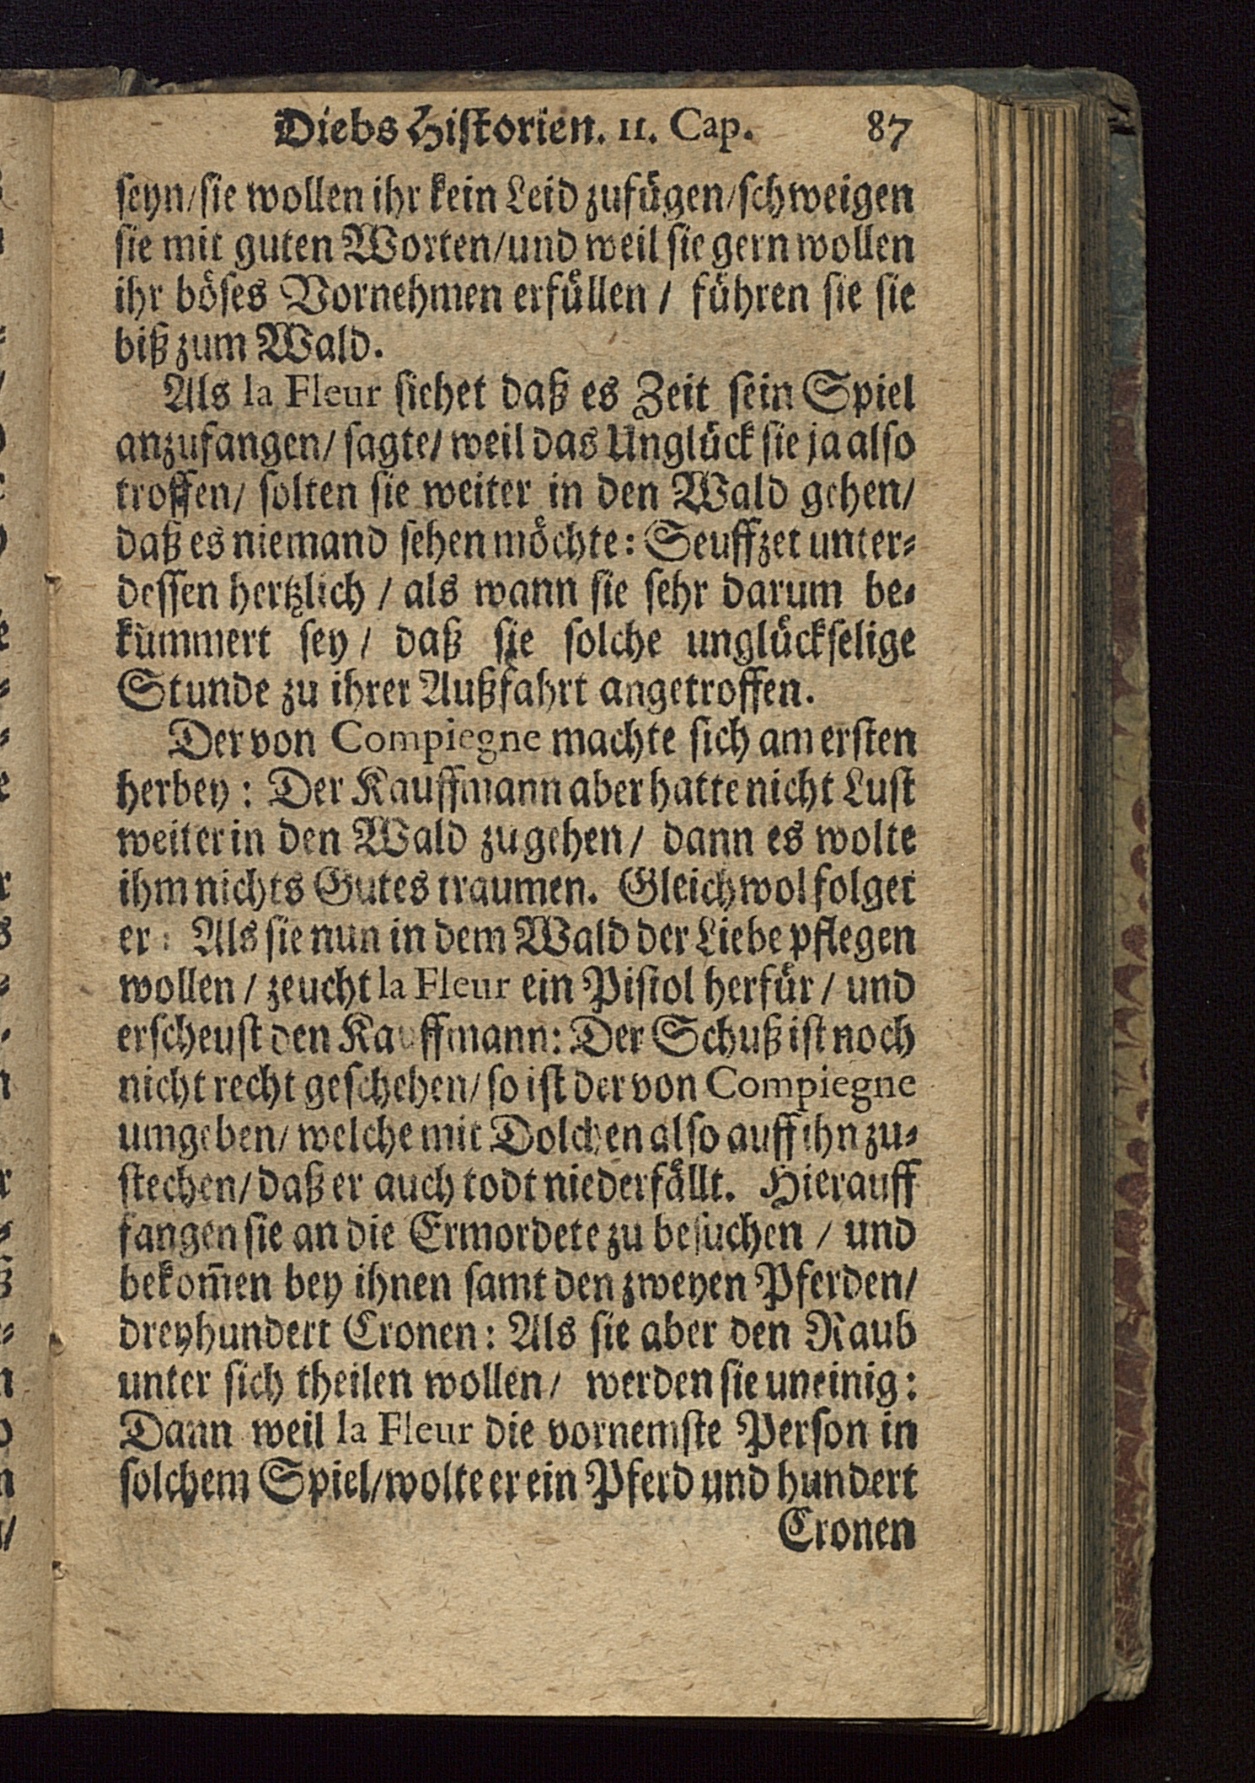 Diebs Historien. II. Cap. 87
seyn/sie wollen ihr kein Leid zufügen/schweigen
sie mit guten Worten/und weil sie gern wollen
ihr böses Vornehmen erfüllen / führen sie sie
biß zum Wald.
Als la Fleur siehet daß es Zeit sein Spiel
anzufangen/ sagte/ weil das Unglück sie ja also
troffen/ solten sie weiter in den Wald gehen/
daß es niemand sehen möchte: Seuffzet unter-
dessen hertzlich / als wann sie sehr darum be-
kümmert sey / daß sie solche unglückselige
Stunde zu ihrer Außfahrt angetroffen.
Der von Compiegne machte sich am ersten
herbey: Der Kauffmann aber hatte nicht Lust
weiter in den Wald zugehen/ dann es wolte
ihm nichts Gutes traumen. Gleichwol folget
er: Als sie nun in dem Wald der Liebe pflegen
wollen / zeucht la Fleur ein Pistol herfür / und
erscheust den Kauffmann: Der Schuß ist noch
nicht recht geschehen/ so ist der von Compiegne
umgeben/ welche mit Dolchen also auff ihn zu-
stechen/ daß er auch todt niederfällt. Hierauff
fangen sie an die Ermordete zu besuchen / und
bekom̃en bey ihnen samt den zweyen Pferden/
dreyhundert Cronen: Als sie aber den Raub
unter sich theilen wollen/ werden sie uneinig:
Dann weil la Fleur die vornemste Person in
solchem Spiel/wolte er ein Pferd und hundert
Cronen